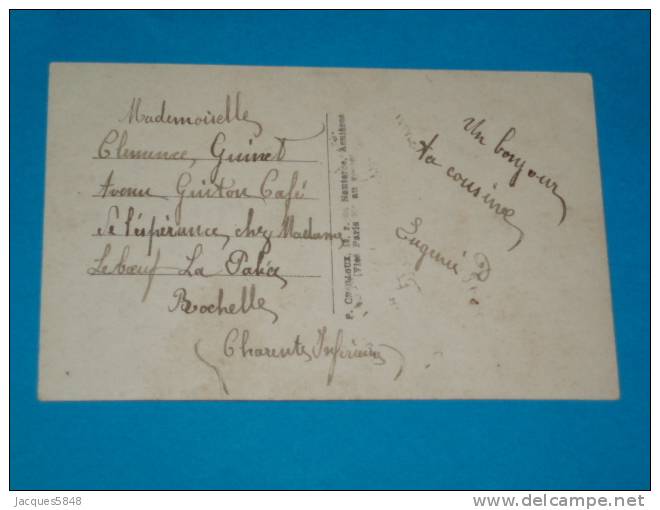 Mademoiselle
Clemence, Guinet
Avenu Guiton Café
de l'éspérance, chez Madame
Lebœuf La Palice
Rochelle
(Charente Inférieure)
Un bonjour
ta cousine
Eugénie
Jacques5848
delcampe.net